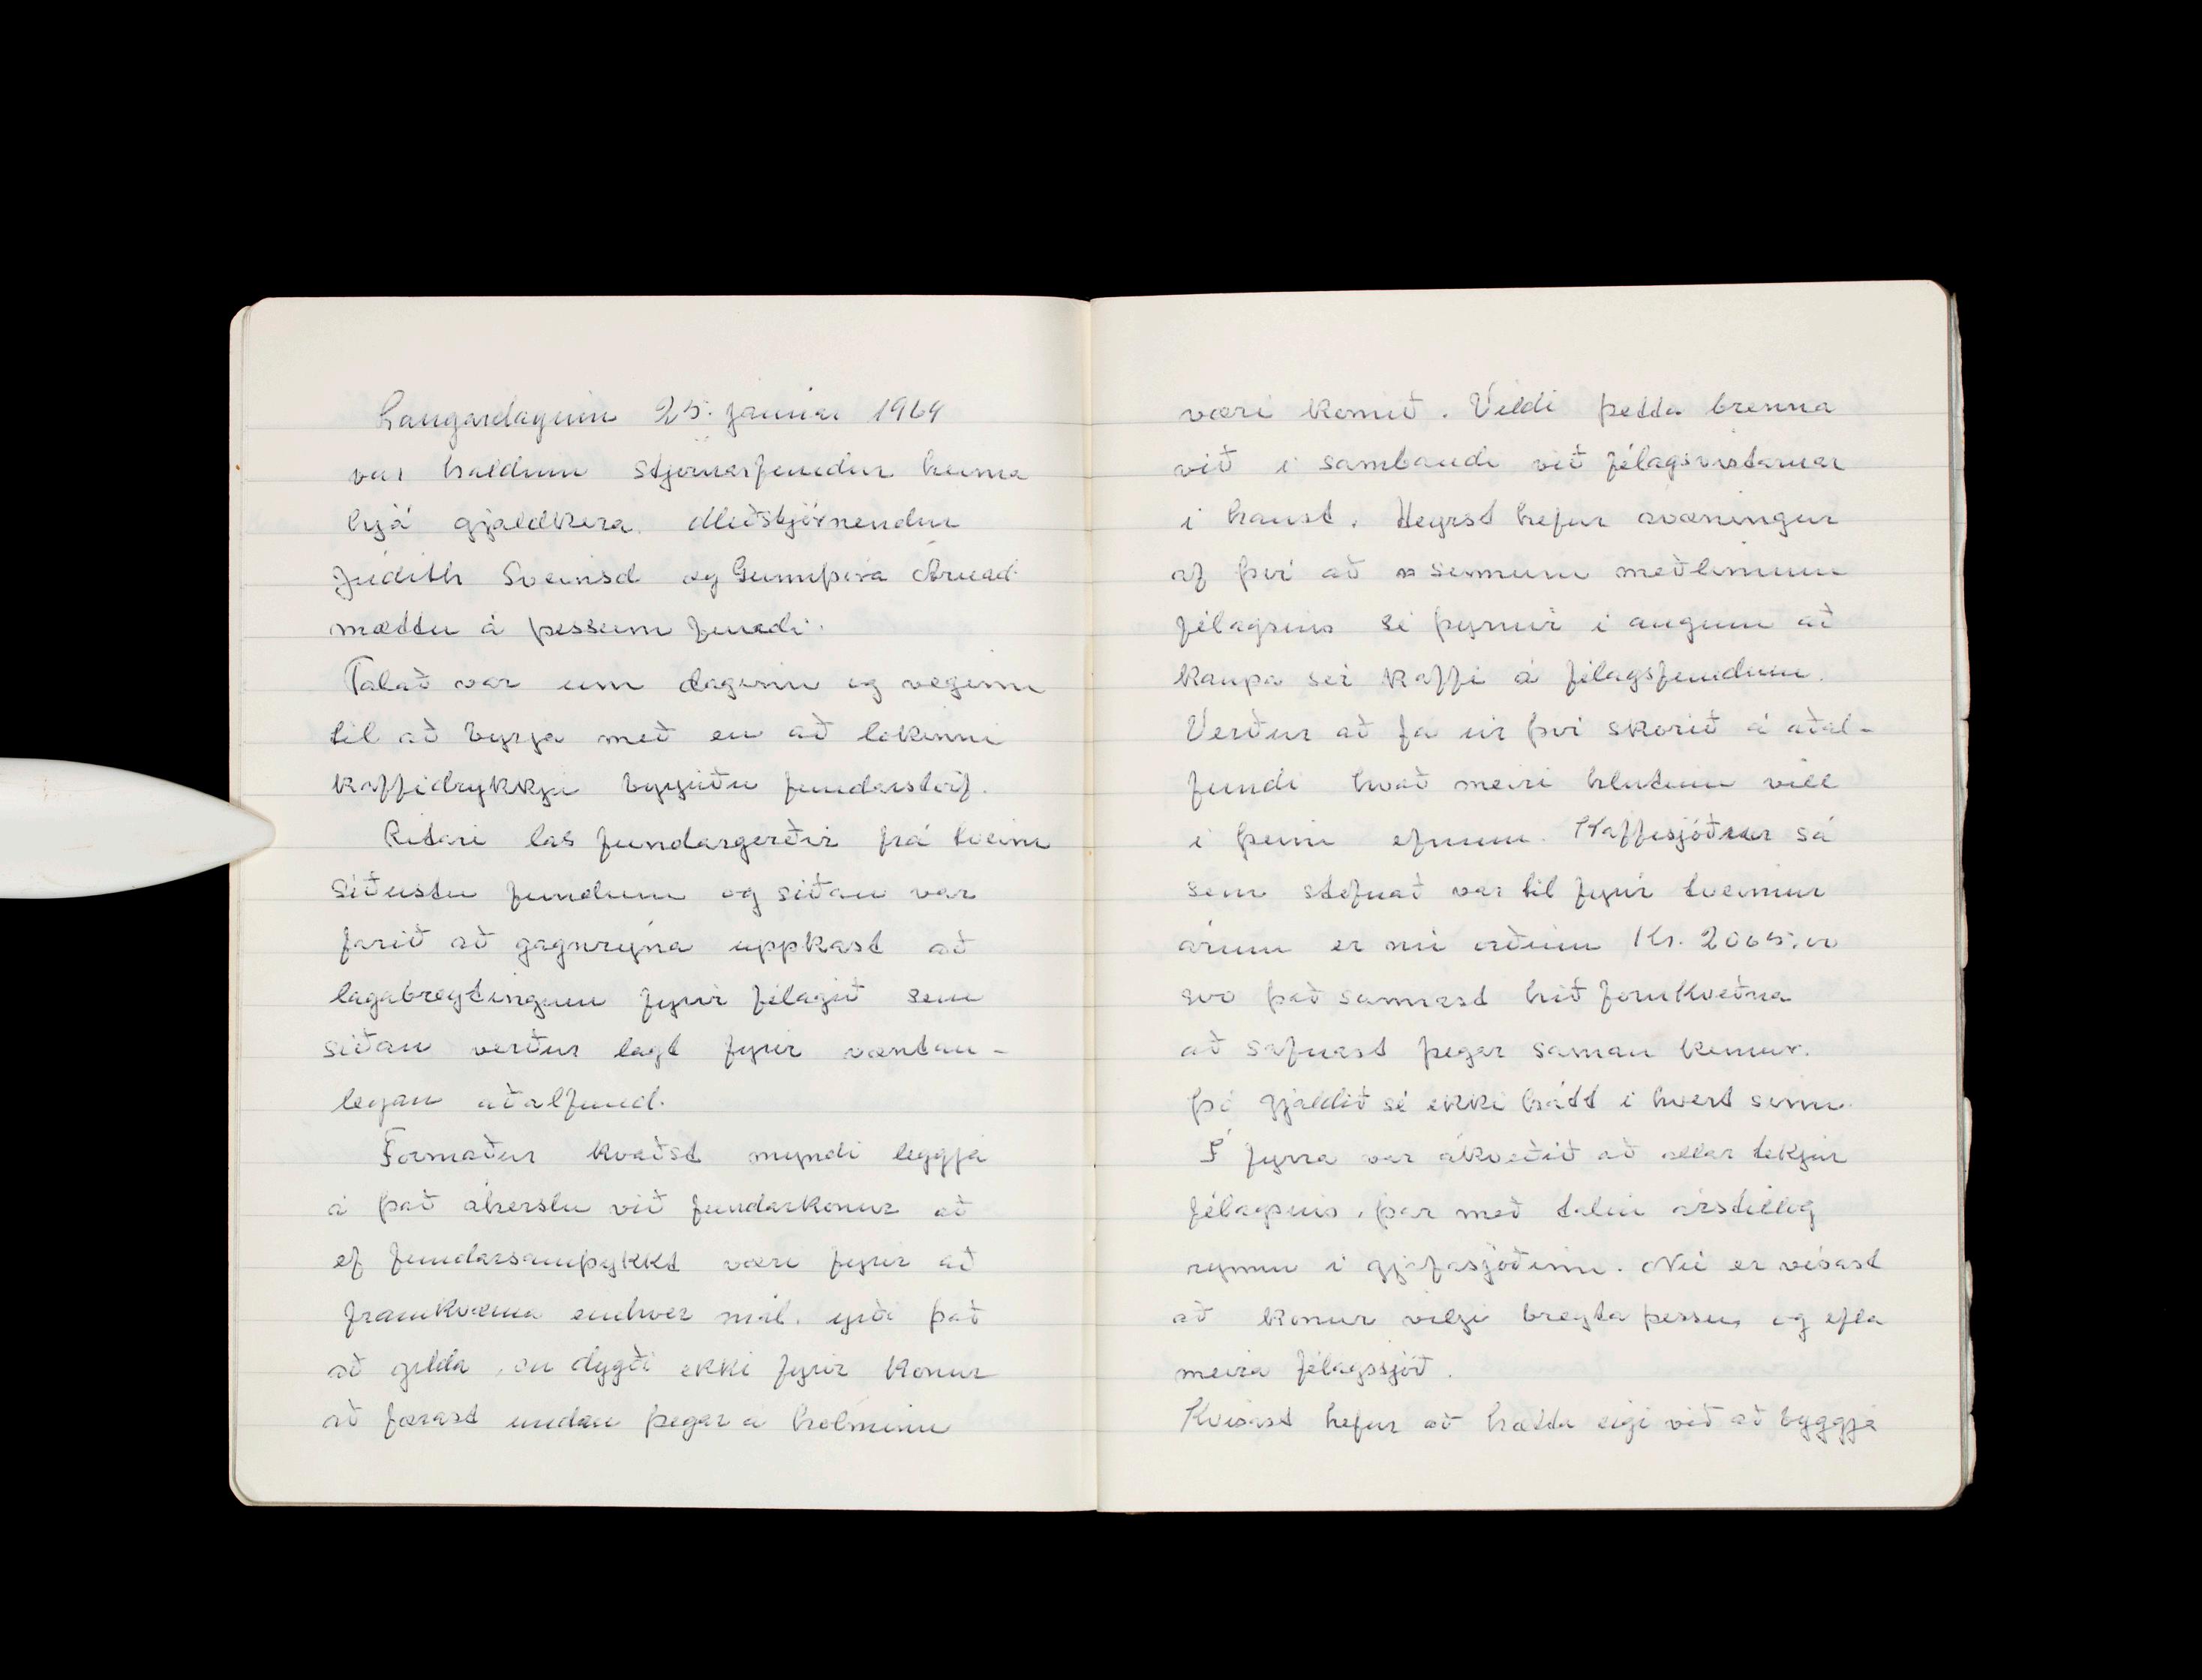 Laugardaginn 25. janúar 1964
var haldinn stjórnarfundur heima
hjá gjaldkera. Meðstjórnendur
Júdith Sveinsd og Gunnþóra Árnad.
mættu á þessum fundi.
Talað var um daginn og veginn
til að byrja með en að lokinni
kaffidrykkju byrjuðu fundarstörf.
Ritari las fundargerðir frá tveim
síðustu fundum og síðan var
farið að gagnrýna uppkast að
lagabreytingum fyrir félagið sem
síðan verður lagt fyrir væntan-
legan aðalfund.
Formaður kvaðst myndi leggja
á það áherslu við fundarkonur að
ef fundarsamþykkt væri fyrir að
framkvæma einhver mál, yrði það
að gilda, en dygði ekki fyrir konur
að færast undan þegar á hólminn
væri komið. Vildi þetta brenna
við í sambandi við félagsvistarnar
í haust. Heyrst hefur ávæningur
af því að sumum meðlimum
félagsins sé þyrnir í augum að
kaupa sér kaffi á félagsfundum.
Verður að fá úr því skorið á aðal-
fundi hvað meiri hlutinn vill
í þeim efnum. Kaffisjóður sá
sem stofnað var til fyrir tveimur
árum er nú orðinn Kr. 2065.00
svo það sannast hið fornkveðna
að safnast þegar saman kemur.
þó gjaldið sé ekki hátt í hvert sinn.
Í fyrra var ákveðið að allar tekjur
félagsins, þar með talin árstillög
rynnu í gjafasjóðinn. Nú er vísast
að konur vilji breyta þessu, og efla
meira félagssjóð.
Kvisast hefur að hætta eigi við að byggja